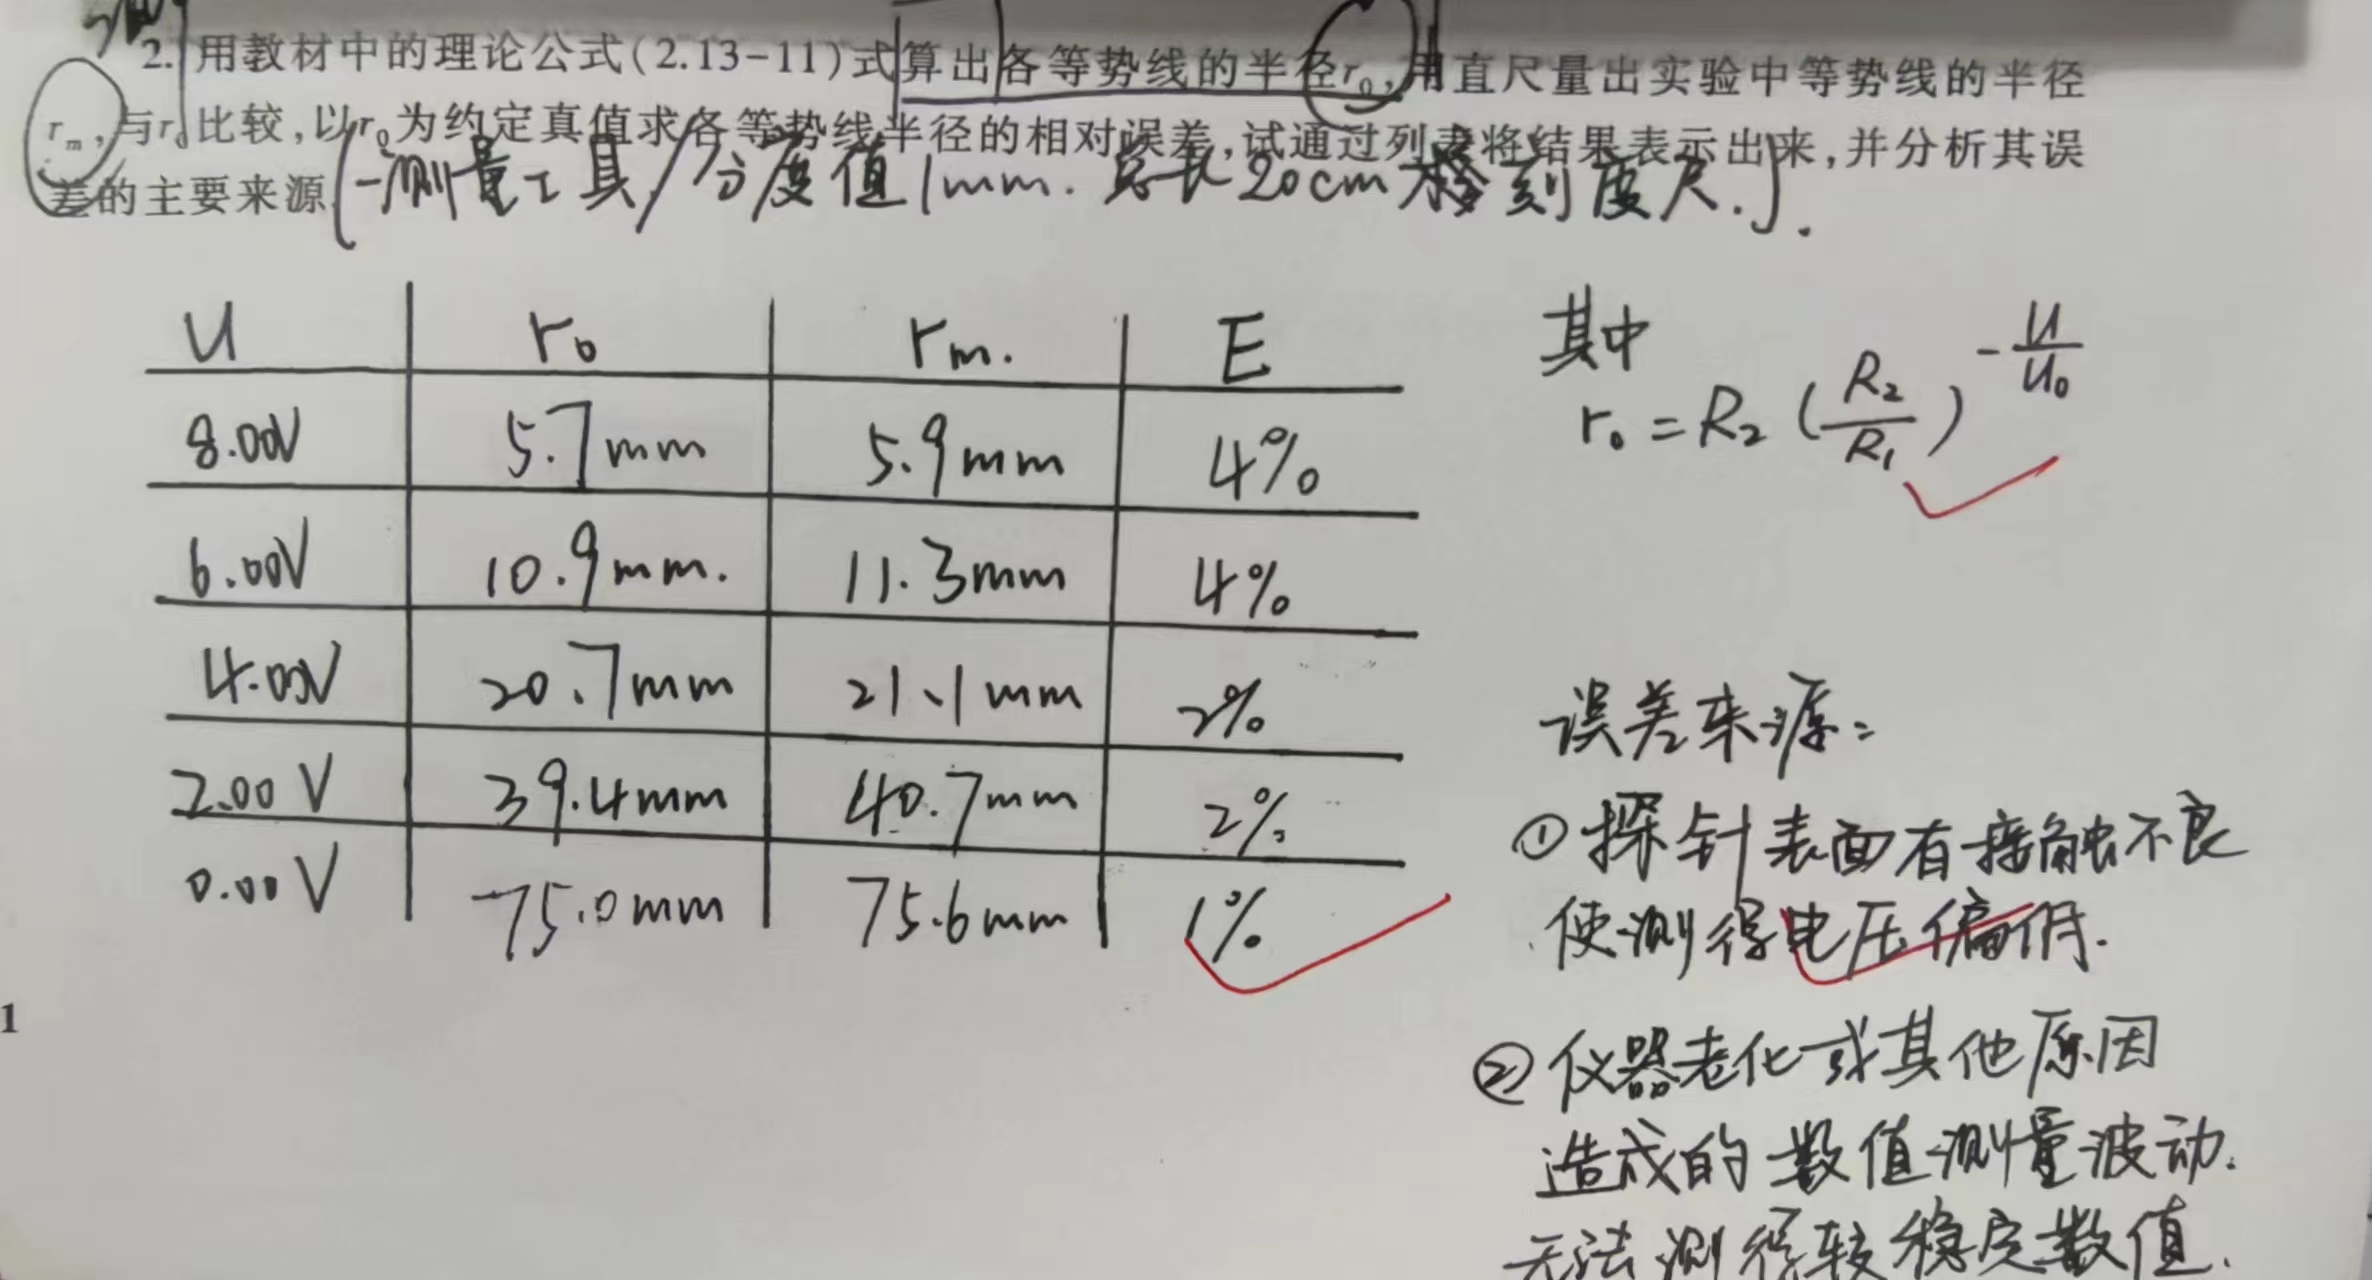 2. 用教材中的理论公式(2.13-11)式算出各等势线的半径r₀,用直尺量出实验中等势线的半径
rₘ,与r₀比较,以r₀为约定真值求各等势线半径的相对误差,试通过列表将结果表示出来,并分析其误
差的主要来源
测量工具 分度值1mm. 总长20cm 刻度尺.
U r₀ rₘ. E
8.00V 5.7mm 5.9mm 4%
6.00V 10.9mm. 11.3mm 4%
4.00V 20.7mm 21.1mm 2%
2.00V 39.4mm 40.7mm 2%
0.00V 75.0mm 75.6mm 1%
其中
r₀ = R₂ (R₂/R₁)^(-U/U₀)
误差来源:
①探针表面有接触不良
使测得电压偏低.
②仪器老化或其他原因
造成的数值测量波动.
无法测得较稳定数值.
1